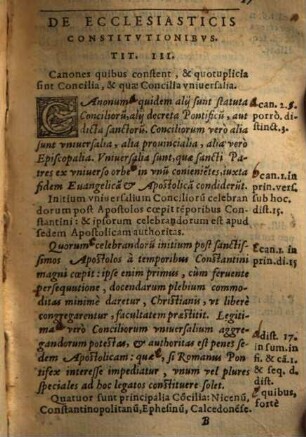 DE ECCLESIASTICIS
CONSTITVTIONIBVS.
TIT. III.
Canones quibus constent, & quotuplicia
sint Concilia, & quæ Concilia vniuersalia.
CAnonum quidem alij sunt statuta
Conciliorũ, alij decreta Pontificũ, aut
dicta sanctorũ. Conciliorum vero alia
sunt vniuersalia, alia prouincialia, alia verò
Episcopalia. Vniuersalia sunt, quæ sancti Pa-
tres ex vniuerso orbe in vnũ conieniẽtes, iuxta
fidem Euangelicã & Apostolicã condiderũt.
Initium vniuersalium Conciliorũ celebran
dorum post Apostolos cœpit tẽporibus Con-
stantini & ipsorum celebrandorum est apud
sedem Apostolicam authoritas.
Quorum celebrandorũ initium post sanctis-
simos Apostolos à temporibus Constantini
magni cœpit: ipse enim primus, cũm feruente
persequutione, docendarum plebium commo-
ditas minimè daretur, Christianis, vt liberè
congregarentur, facultatem præstitit. Legiti-
ma verò Conciliorum vniuersalium aggre-
gandorum potestas, & authoritas est penes se-
dem Apostolicam: quæ, si Romanus Pon-
tifex interesse impediatur, vnum vel plures
speciales ad hoc legatos constituere solet.
Quatuor sunt principalia Cõcilia: Nicenũ,
Constantinopolitanũ, Ephesinũ, Calcedonẽse.
B
a can. 2. §
porrò. di-
stinct. 3.
b can. 1. in
prin. vers.
sub hoc.
dist. 15.
c can. 1. in
prin. di. 15
d dist. 17
in sum. in
fi. & cã. 1.
& seq. d.
dist.
e quibus,
fortè